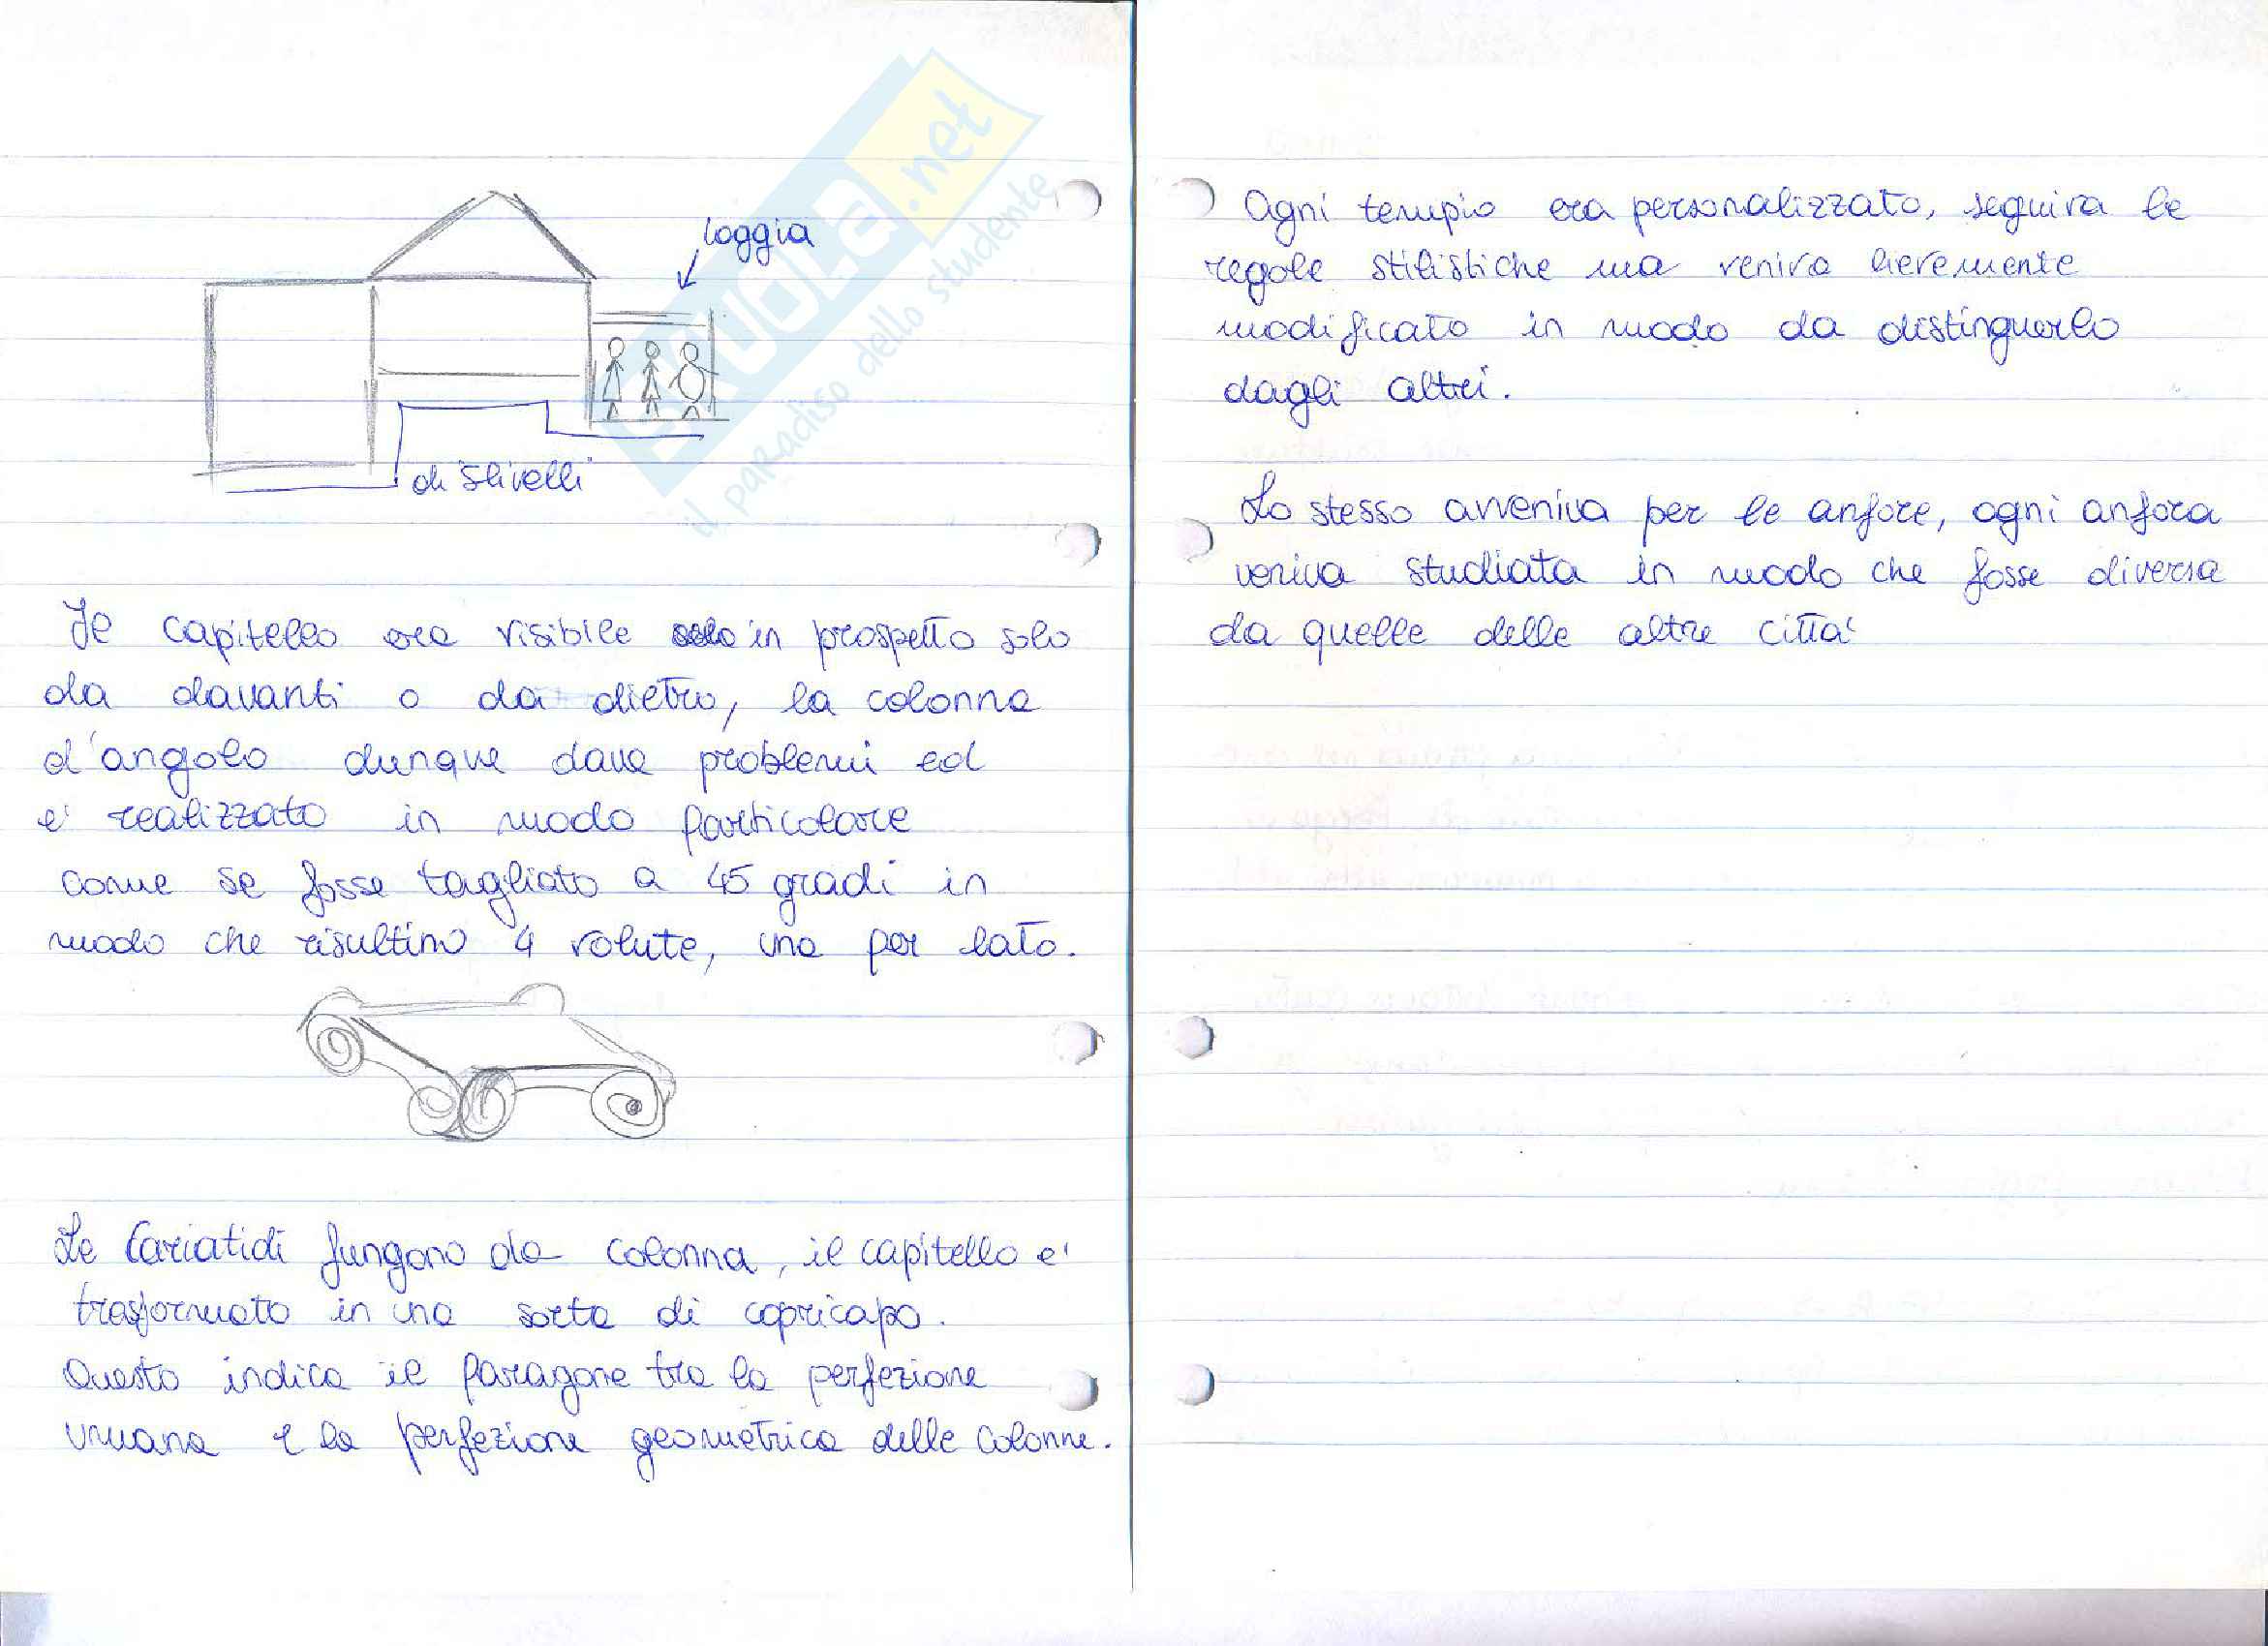 loggia
dislivelli
Il capitello era visibile solo in prospetto solo
da davanti o da dietro, la colonna
d'angolo dunque dava problemi ed
e' realizzato in modo particolare
come se fosse tagliato a 45 gradi in
modo che risultino 4 volute, una per lato.
Le Cariatidi fungono da colonna, il capitello e'
trasformato in una sorta di copricapo.
Questo indica il paragone tra la perfezione
umana e la perfezione geometrica delle colonne.
Ogni tempio era personalizzato, seguiva le
regole stilistiche ma veniva lievemente
modificato in modo da distinguerlo
dagli altri.
Lo stesso avveniva per le anfore, ogni anfora
veniva studiata in modo che fosse diversa
da quelle delle altre citta'
SKUOLA.net
il paradiso dello studente